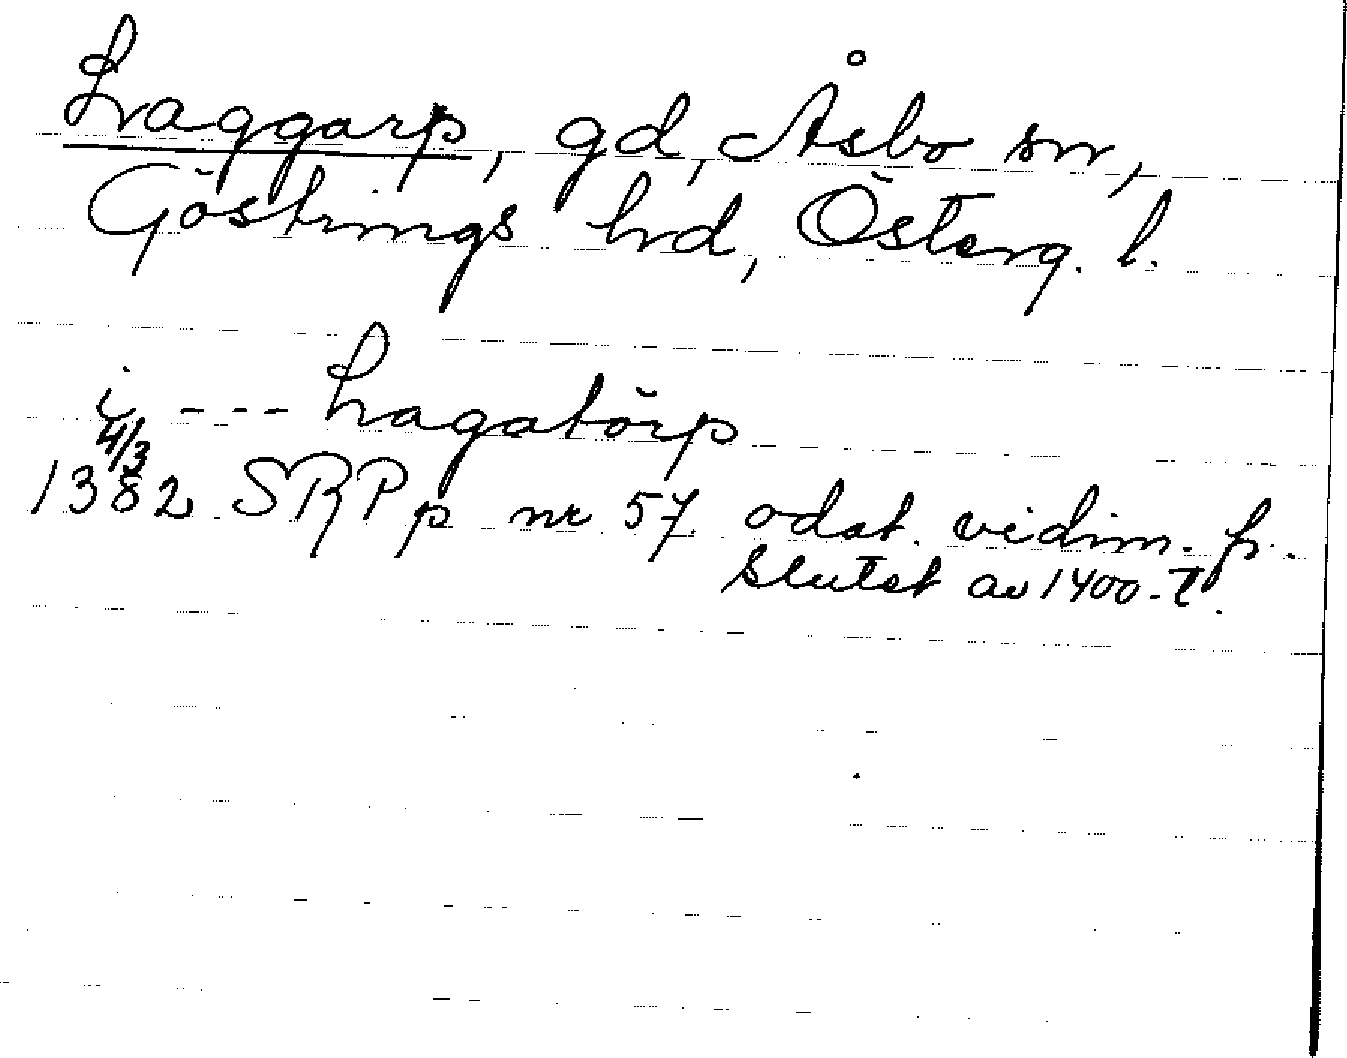 Laggarp, gd, Åsbo sn,
Göstrings hd, Österg. l.
i --- Lagatörp
4/3
1382 SRPp nr 57 odat. vidim. fr.
slutet av 1400-t.